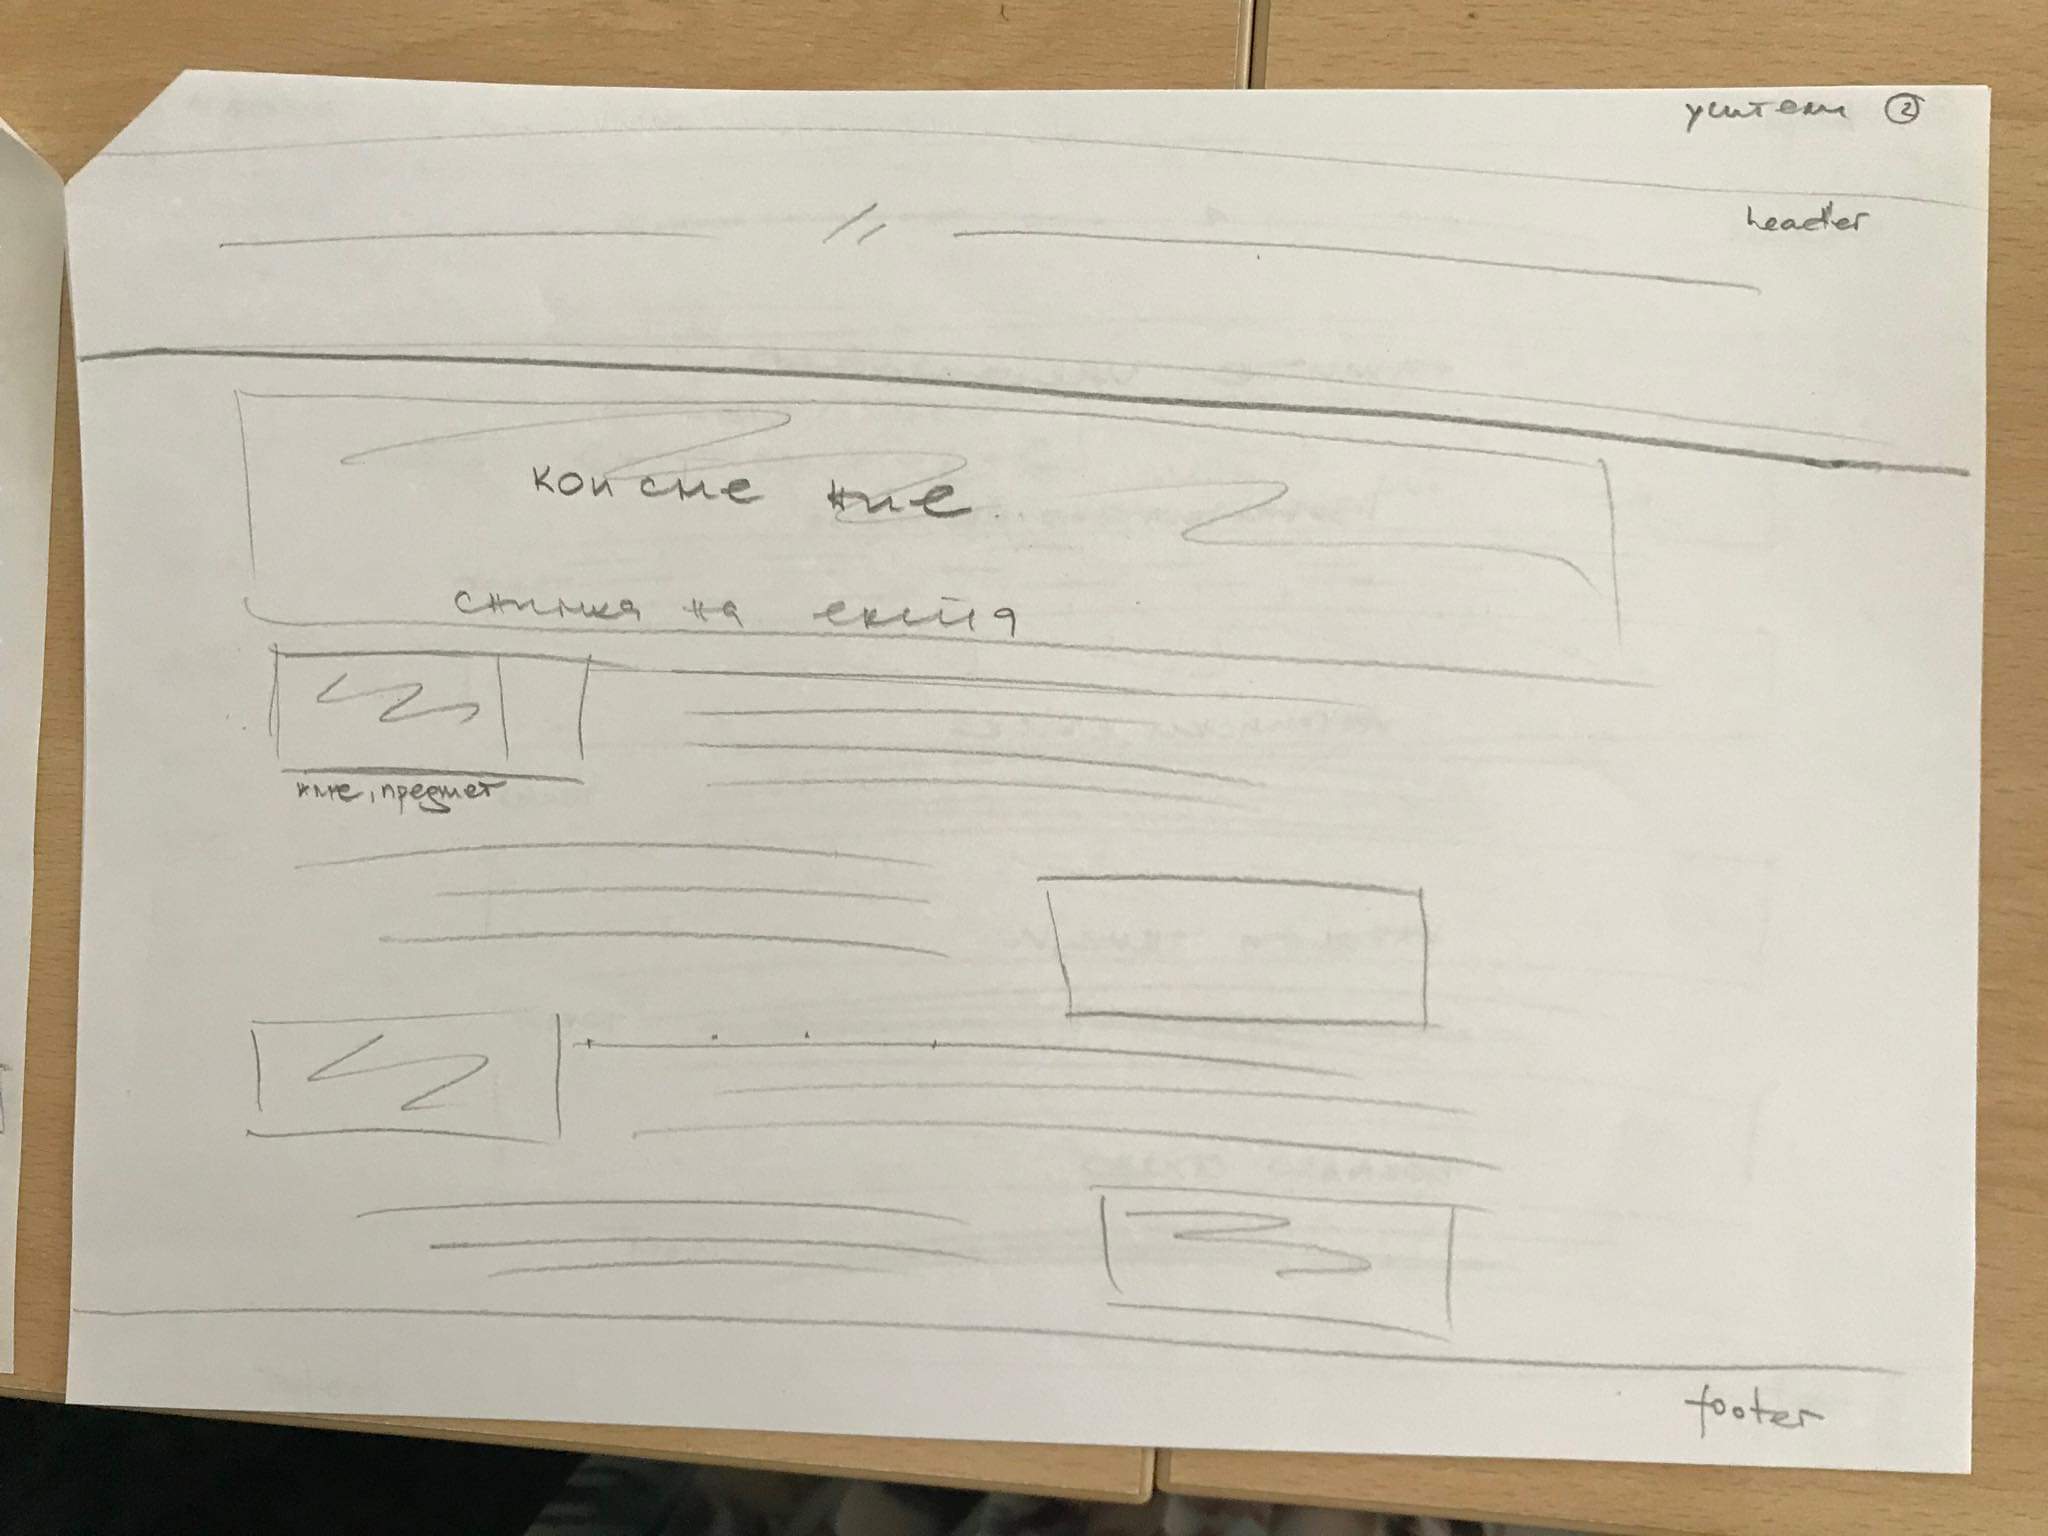 учители ②
header
кои сме ние
снимка на екипа
име, предмет
footer